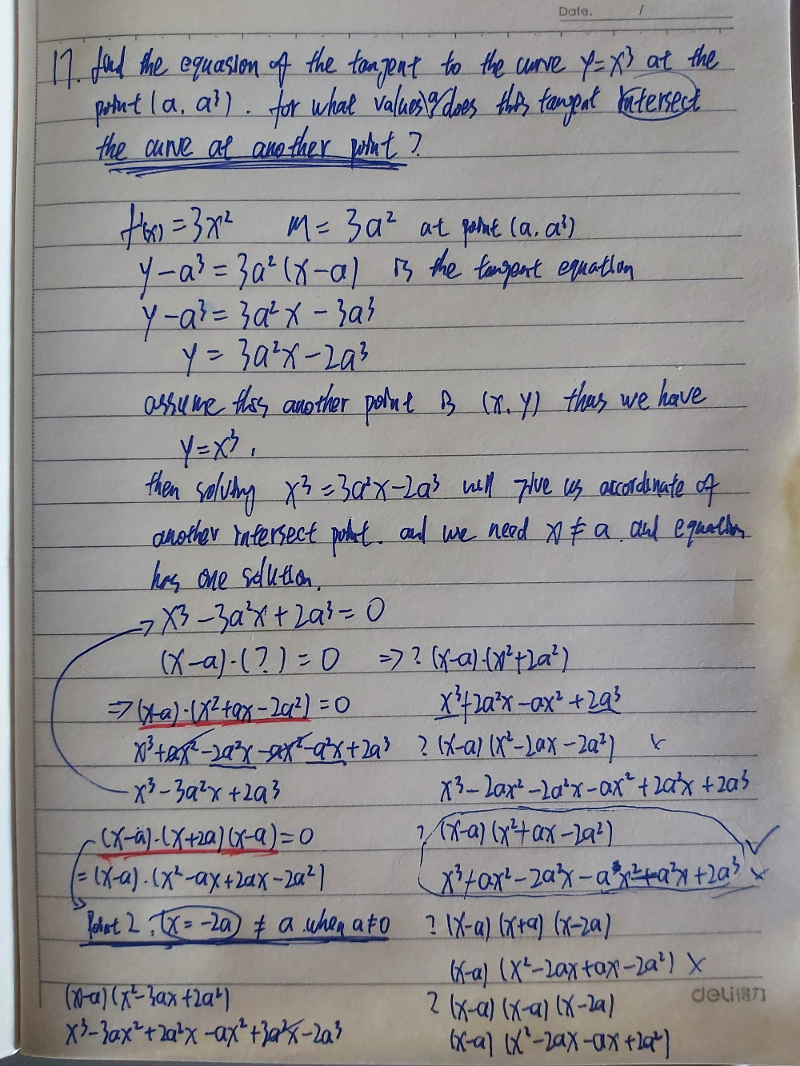 Date. /
17. find the equasion of the tangent to the curve y=x³ at the
point (a, a³). for what values of a does this tangent intersect
the curve at another point?
f'(x) = 3x² m = 3a² at point (a, a³)
y-a³ = 3a²(x-a) is the tangent equation
y-a³ = 3a²x - 3a³
y = 3a²x - 2a³
assume this another point is (x, y) thus we have
y = x³.
then solving x³ = 3a²x - 2a³ will give us accordinate of
another intersect point. and we need x ≠ a. and equation
has one solution.
x³ - 3a²x + 2a³ = 0
(x-a)·(?) = 0 => ? (x-a)·(x²+2a²)
=> (x-a)·(x²+ax-2a²) = 0 x³+2a²x-ax²+2a³
x³+ax²-2a²x-ax²-a²x+2a³ ? (x-a)(x²-2ax-2a²) x
x³-3a²x+2a³ x³-2ax²-2a²x-ax²+2a²x+2a³
(x-a)·(x+2a)(x-a) = 0 ? (x-a)(x²+ax-2a²) ✓
= (x-a)·(x²-ax+2ax-2a²) x³+ax²-2a²x-a x²-a²x+2a³ x
Point 2: x = -2a ≠ a when a≠0 ? (x-a)(x+a)(x-2a)
(x-a)(x²-2ax+ax-2a²) x
deli得力
(x-a)(x²-3ax+2a²) ? (x-a)(x-a)(x-2a)
x³-3ax²+2a²x-ax²+3a²x-2a³ (x-a)(x²-2ax-ax+2a²)